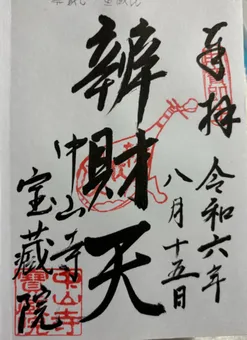 奉拝
令和六年
八月十五日
辨財天
中山寺
宝蔵院
中山寺